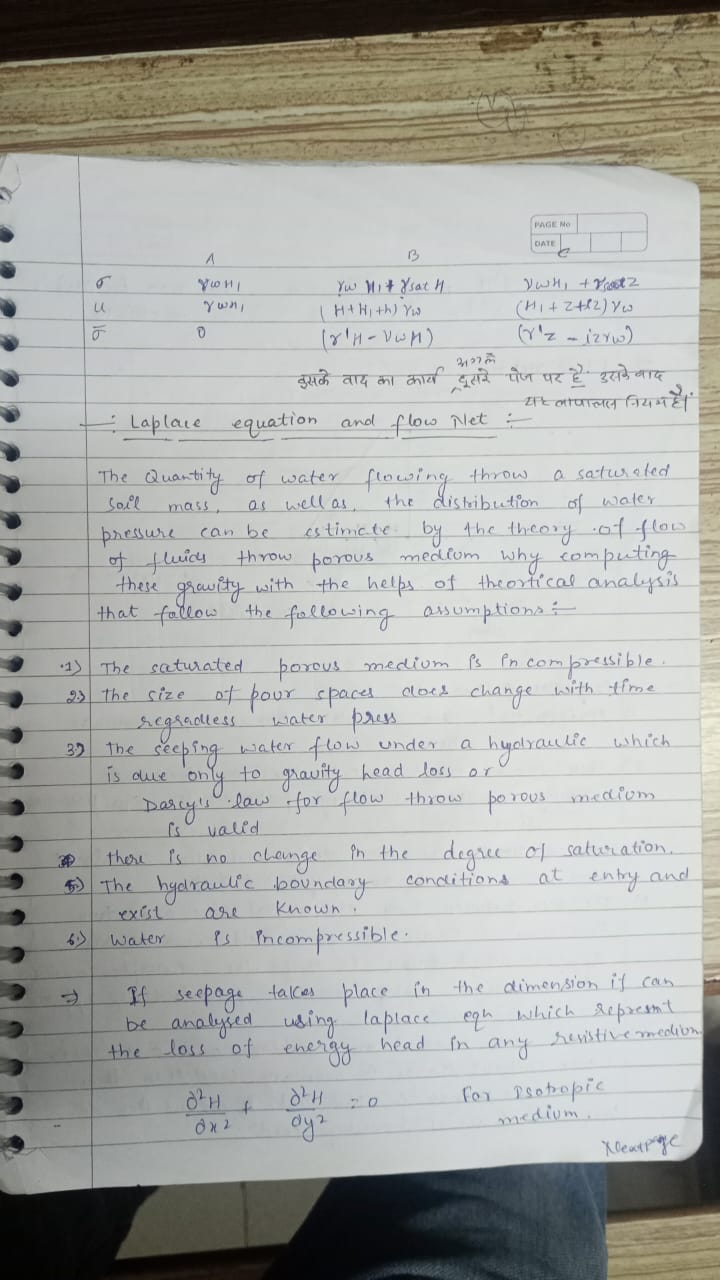 PAGE No
DATE
A B C
σ γωH₁ γω H₁ + γsat H γωH₁ + γsat z
u γωH₁ (H+H₁+h) γω (H₁ + z + iz) γω
σ̄ 0 (γ'H - γωH) (γ'z - izγω)
अगले
इसके वाद का कार्य दूसरे पेज पर है उसके वाद
यह लापालास नियम है।
Laplace equation and flow Net :-
The Quantity of water flowing throw a saturated
soil mass, as well as, the distribution of water
pressure can be estimate by the theory of flow
of fluids throw porous medium why computing
these gravity with the helps of theortical analysis
that follow the following assumptions :-
1) The saturated porous medium is incompressible.
2) the size of pour spaces does change with time
regradless water press
3) the seeping water flow under a hydraulic which
is due only to gravity head loss or
Darcy's law for flow throw porous medium
is valid
4) there is no change in the degree of saturation.
5) The hydraulic boundary conditions at entry and
exist are known.
6) water is incompressible.
⇒ If seepage takes place in the dimension if can
be analysed using laplace eqn which represnt
the loss of energy head in any resistive medium
∂²H/∂x² + ∂²H/∂y² = 0 for isotropic
medium.